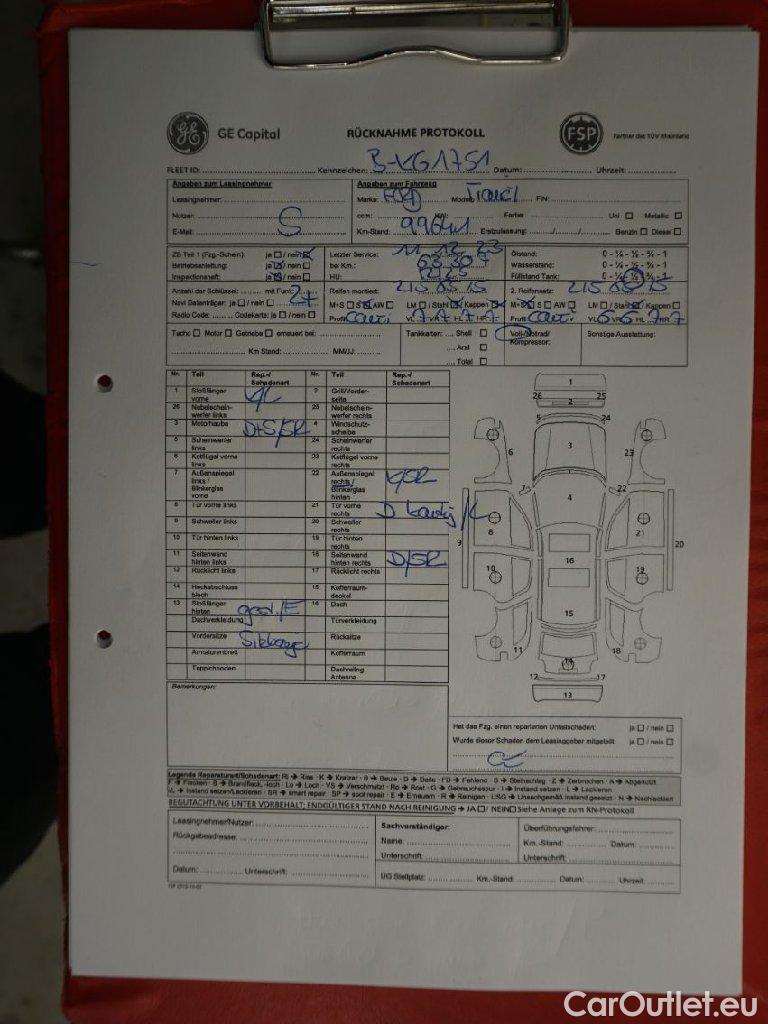 GE Capital RÜCKNAHME PROTOKOLL FSP Partner des TÜV Rheinland
FLEET ID: Kennzeichen: B-KG1751 Datum: Uhrzeit:
Angaben zum Leasingnehmer Angaben zum Fahrzeug
Leasingnehmer: Marke: FORD Modell: FIN:
Nutzer: S ccm: KW: Farbe Uni Metallic
E-Mail: Km-Stand: Erstzulassung: / / Benzin Diesel
ZB Teil 1 (Fzg.-Schein): ja / nein Letzter Service: 11 12 23 Ölstand: 0 - ¼ - ½ - ¾ - 1
Betriebsanleitung: ja / nein bei Km.: Wasserstand: 0 - ¼ - ½ - ¾ - 1
Inspektionsheft: ja / nein HU: Füllstand Tank: 0 - ¼ - ½ - ¾ - 1
Anzahl der Schlüssel: mit Funk: Reifen montiert: 215 65 15 2. Reifensatz: 215 65 15
Navi Datenträger: ja / nein 2+ M+S S AW LM / Stahl Kappen M+S S AW LM / Stahl Kappen
Radio Code: Codekarte: ja / nein Profil Conti VL 7 VR 7 HL 7 HR 7 Profil Conti VL 6 VR 6 HL 7 HR 7
Tacho Motor Getriebe erneuert bei: Tankkarten: Shell Voll-/Notrad/ Sonstige Ausstattung:
Aral Kompressor:
Km Stand: MM/JJ: Total
Nr. Teil Rep.-/ Schadenart Nr. Teil Rep.-/ Schadenart
1 Stoßfänger vorne K/L 2 Grill/Vorderseite
26 Nebelscheinwerfer links 25 Nebelscheinwerfer rechts
3 Motorhaube D+S/SR 4 Windschutzscheibe
5 Scheinwerfer links 24 Scheinwerfer rechts
6 Kotflügel vorne links 23 Kotflügel vorne rechts
7 Außenspiegel links / Blinkerglas vorne 22 Außenspiegel rechts / Blinkerglas hinten K/SR
8 Tür vorne links 21 Tür vorne rechts D kantig /L
9 Schweller links 20 Schweller rechts
10 Tür hinten links 19 Tür hinten rechts
11 Seitenwand hinten links 18 Seitenwand hinten rechts D/SR
12 Rücklicht links 17 Rücklicht rechts
14 Heckabschlussblech 15 Kofferraumdeckel
13 Stoßfänger hinten /E 16 Dach
Dachverkleidung Türverkleidung
Vordersitze Rücksitze
Armaturenbrett Kofferraum
Teppichboden Dachreling Antenne
1
26 25
2
5 24
3
6 23
7 22
4
8 21
9 20
16
10 19
15
11 18
14
12 17
13
Bemerkungen:
Hat das Fzg. einen reparierten Unfallschaden: ja / nein
Wurde dieser Schaden dem Leasinggeber mitgeteilt ja / nein
Legende Reparaturart/Schadenart: Ri → Riss - K → Kratzer - B → Beule - D → Delle - FD → Fehlend - S → Steinschlag - Z → Zerbrochen - A → Abgenutzt
F → Flecken - B → Brandfleck, -loch - Lo → Loch - VS → Verschmutzt - Ro → Rost - G → Gebrauchsspur - I → Instand setzen - L → Lackieren
IL → Instand setzen/Lackieren - SR → smart repair - SP → spot repair - E → Erneuern - R → Reinigen - USG → Unsachgemäß instand gesetzt - N → Nachlackiert
BEGUTACHTUNG UNTER VORBEHALT; ENDGÜLTIGER STAND NACH REINIGUNG → JA / NEIN Siehe Anlage zum RN-Protokoll
Leasingnehmer/Nutzer: Sachverständiger: Überführungsfahrer:
Rückgabeadresse: Name: Km.-Stand: Datum:
Unterschrift Unterschrift:
Datum: Unterschrift: UG Stellplatz: Km.-Stand: Datum: Uhrzeit:
CarOutlet.eu